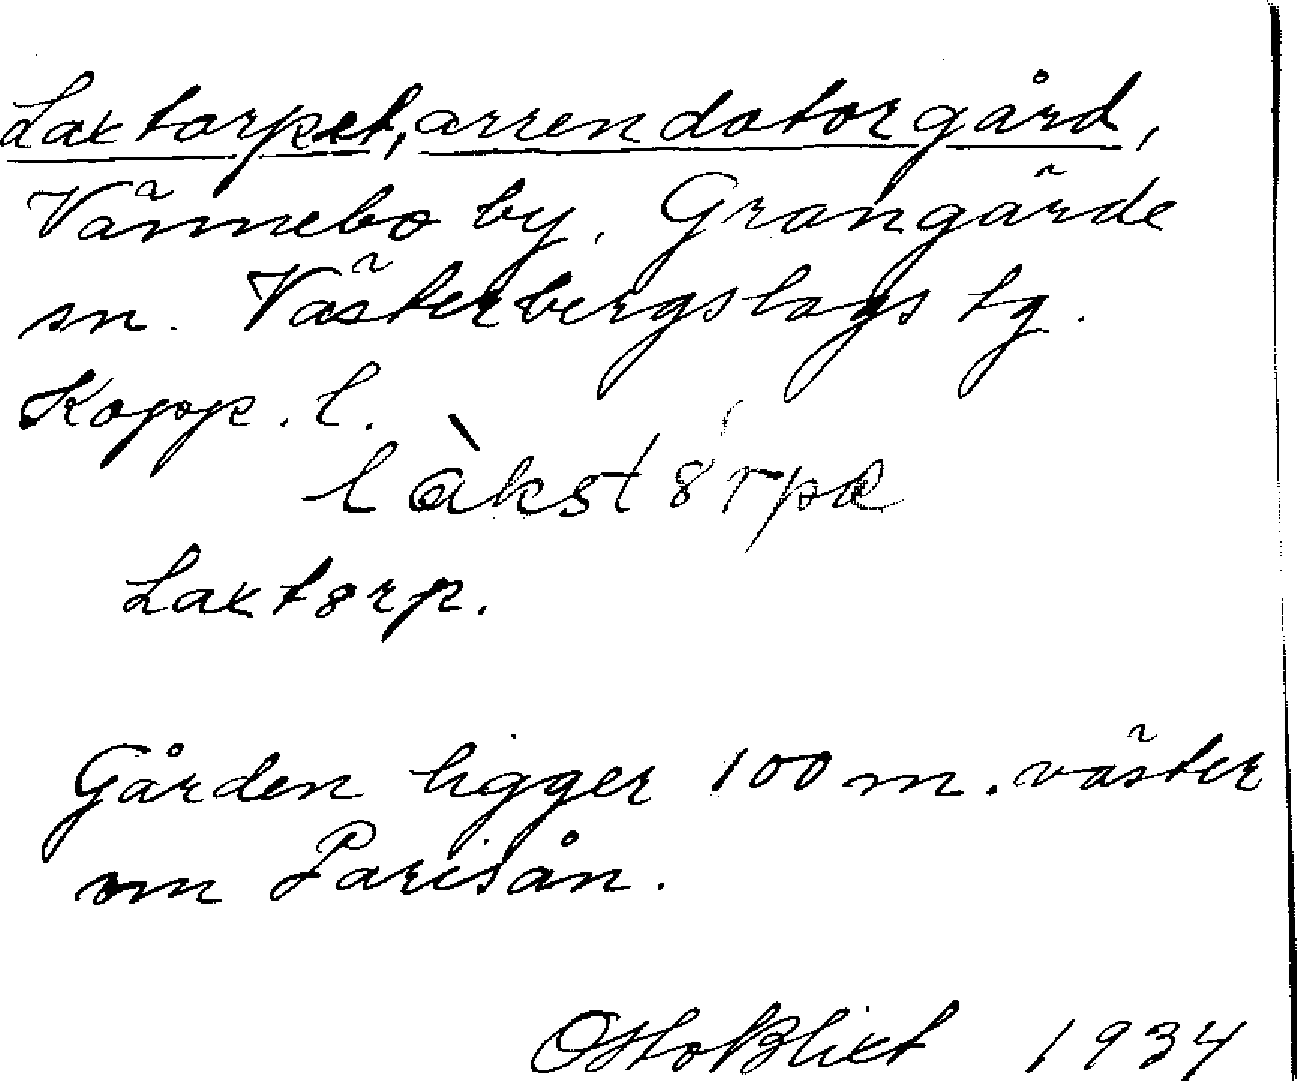 Laxtorpet, arrendatorgård,
Vännebo by, Grangärde
sn. Västerbergslags tg.
Kopp. l.
làkst8rpæ
Laxt8rp.
Gården ligger 100 m. väster
om Parisån.
Otto Blixt 1934